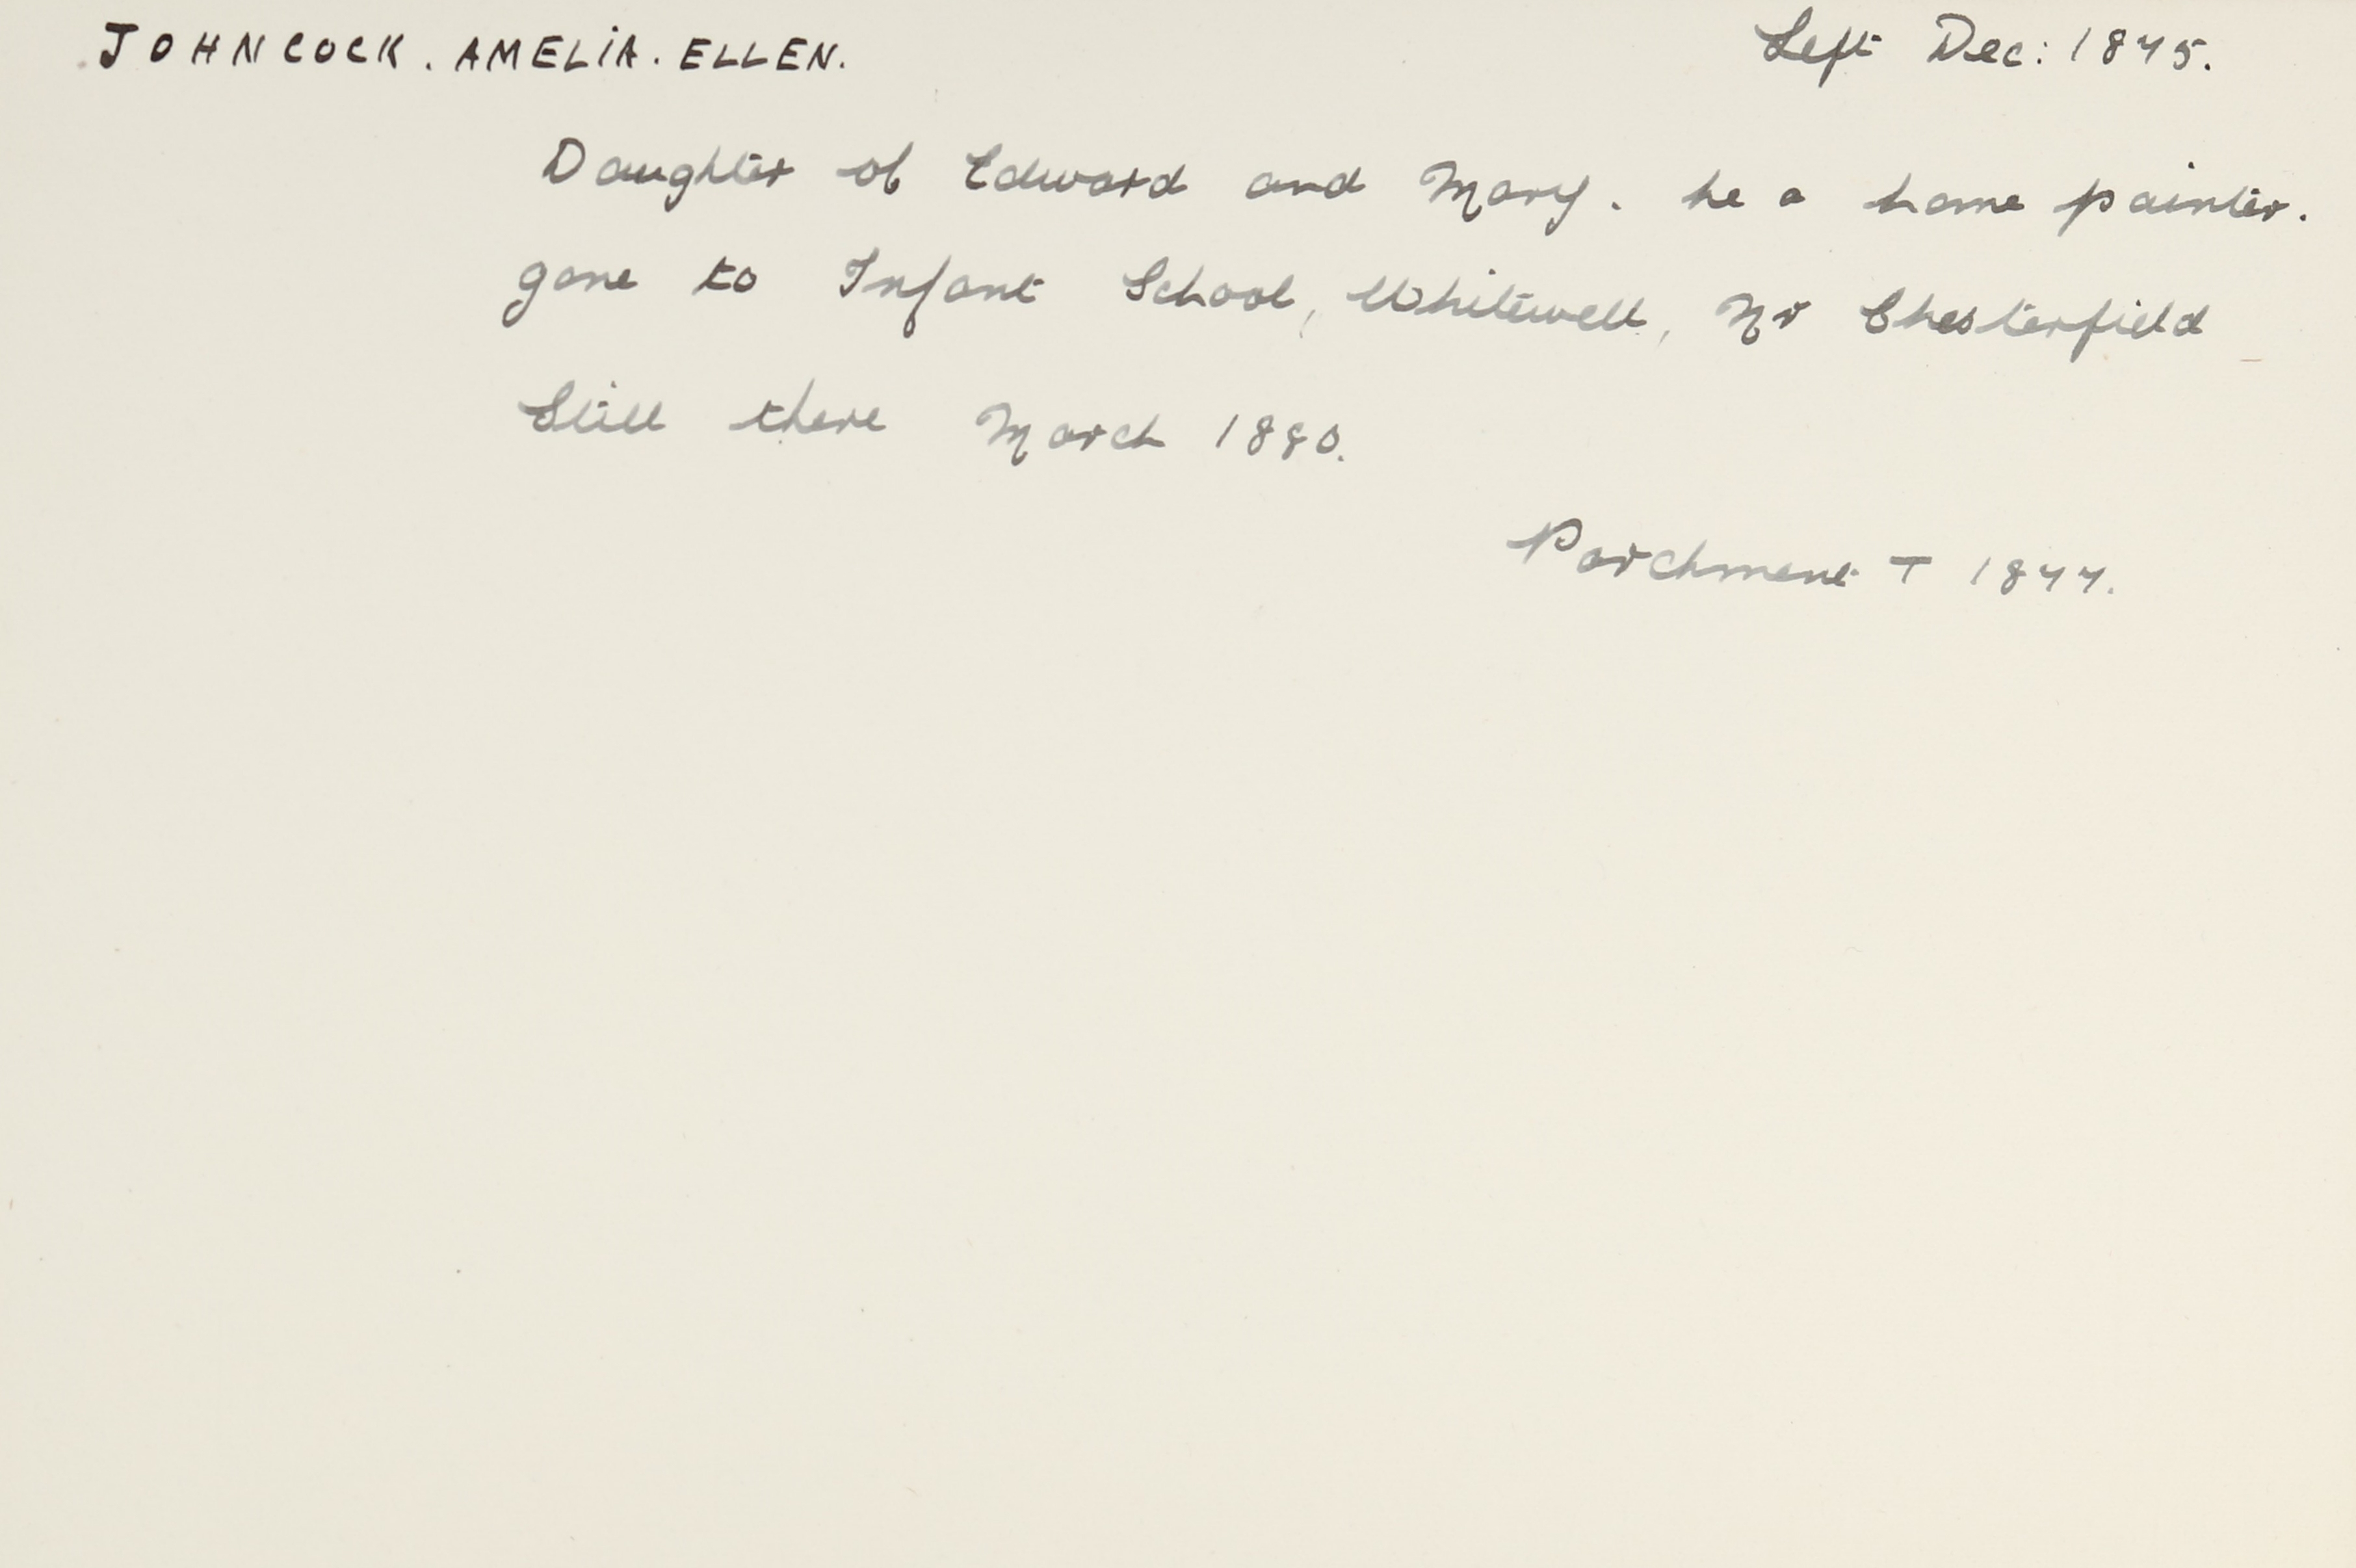 JOHNCOCK. AMELIA. ELLEN. Left Dec: 1875.
Daughter of Edward and Mary. he a home painter.
gone to Infant School, Whitewell, Nr Chesterfield
Still there March 1880.
Parchment T 1877.